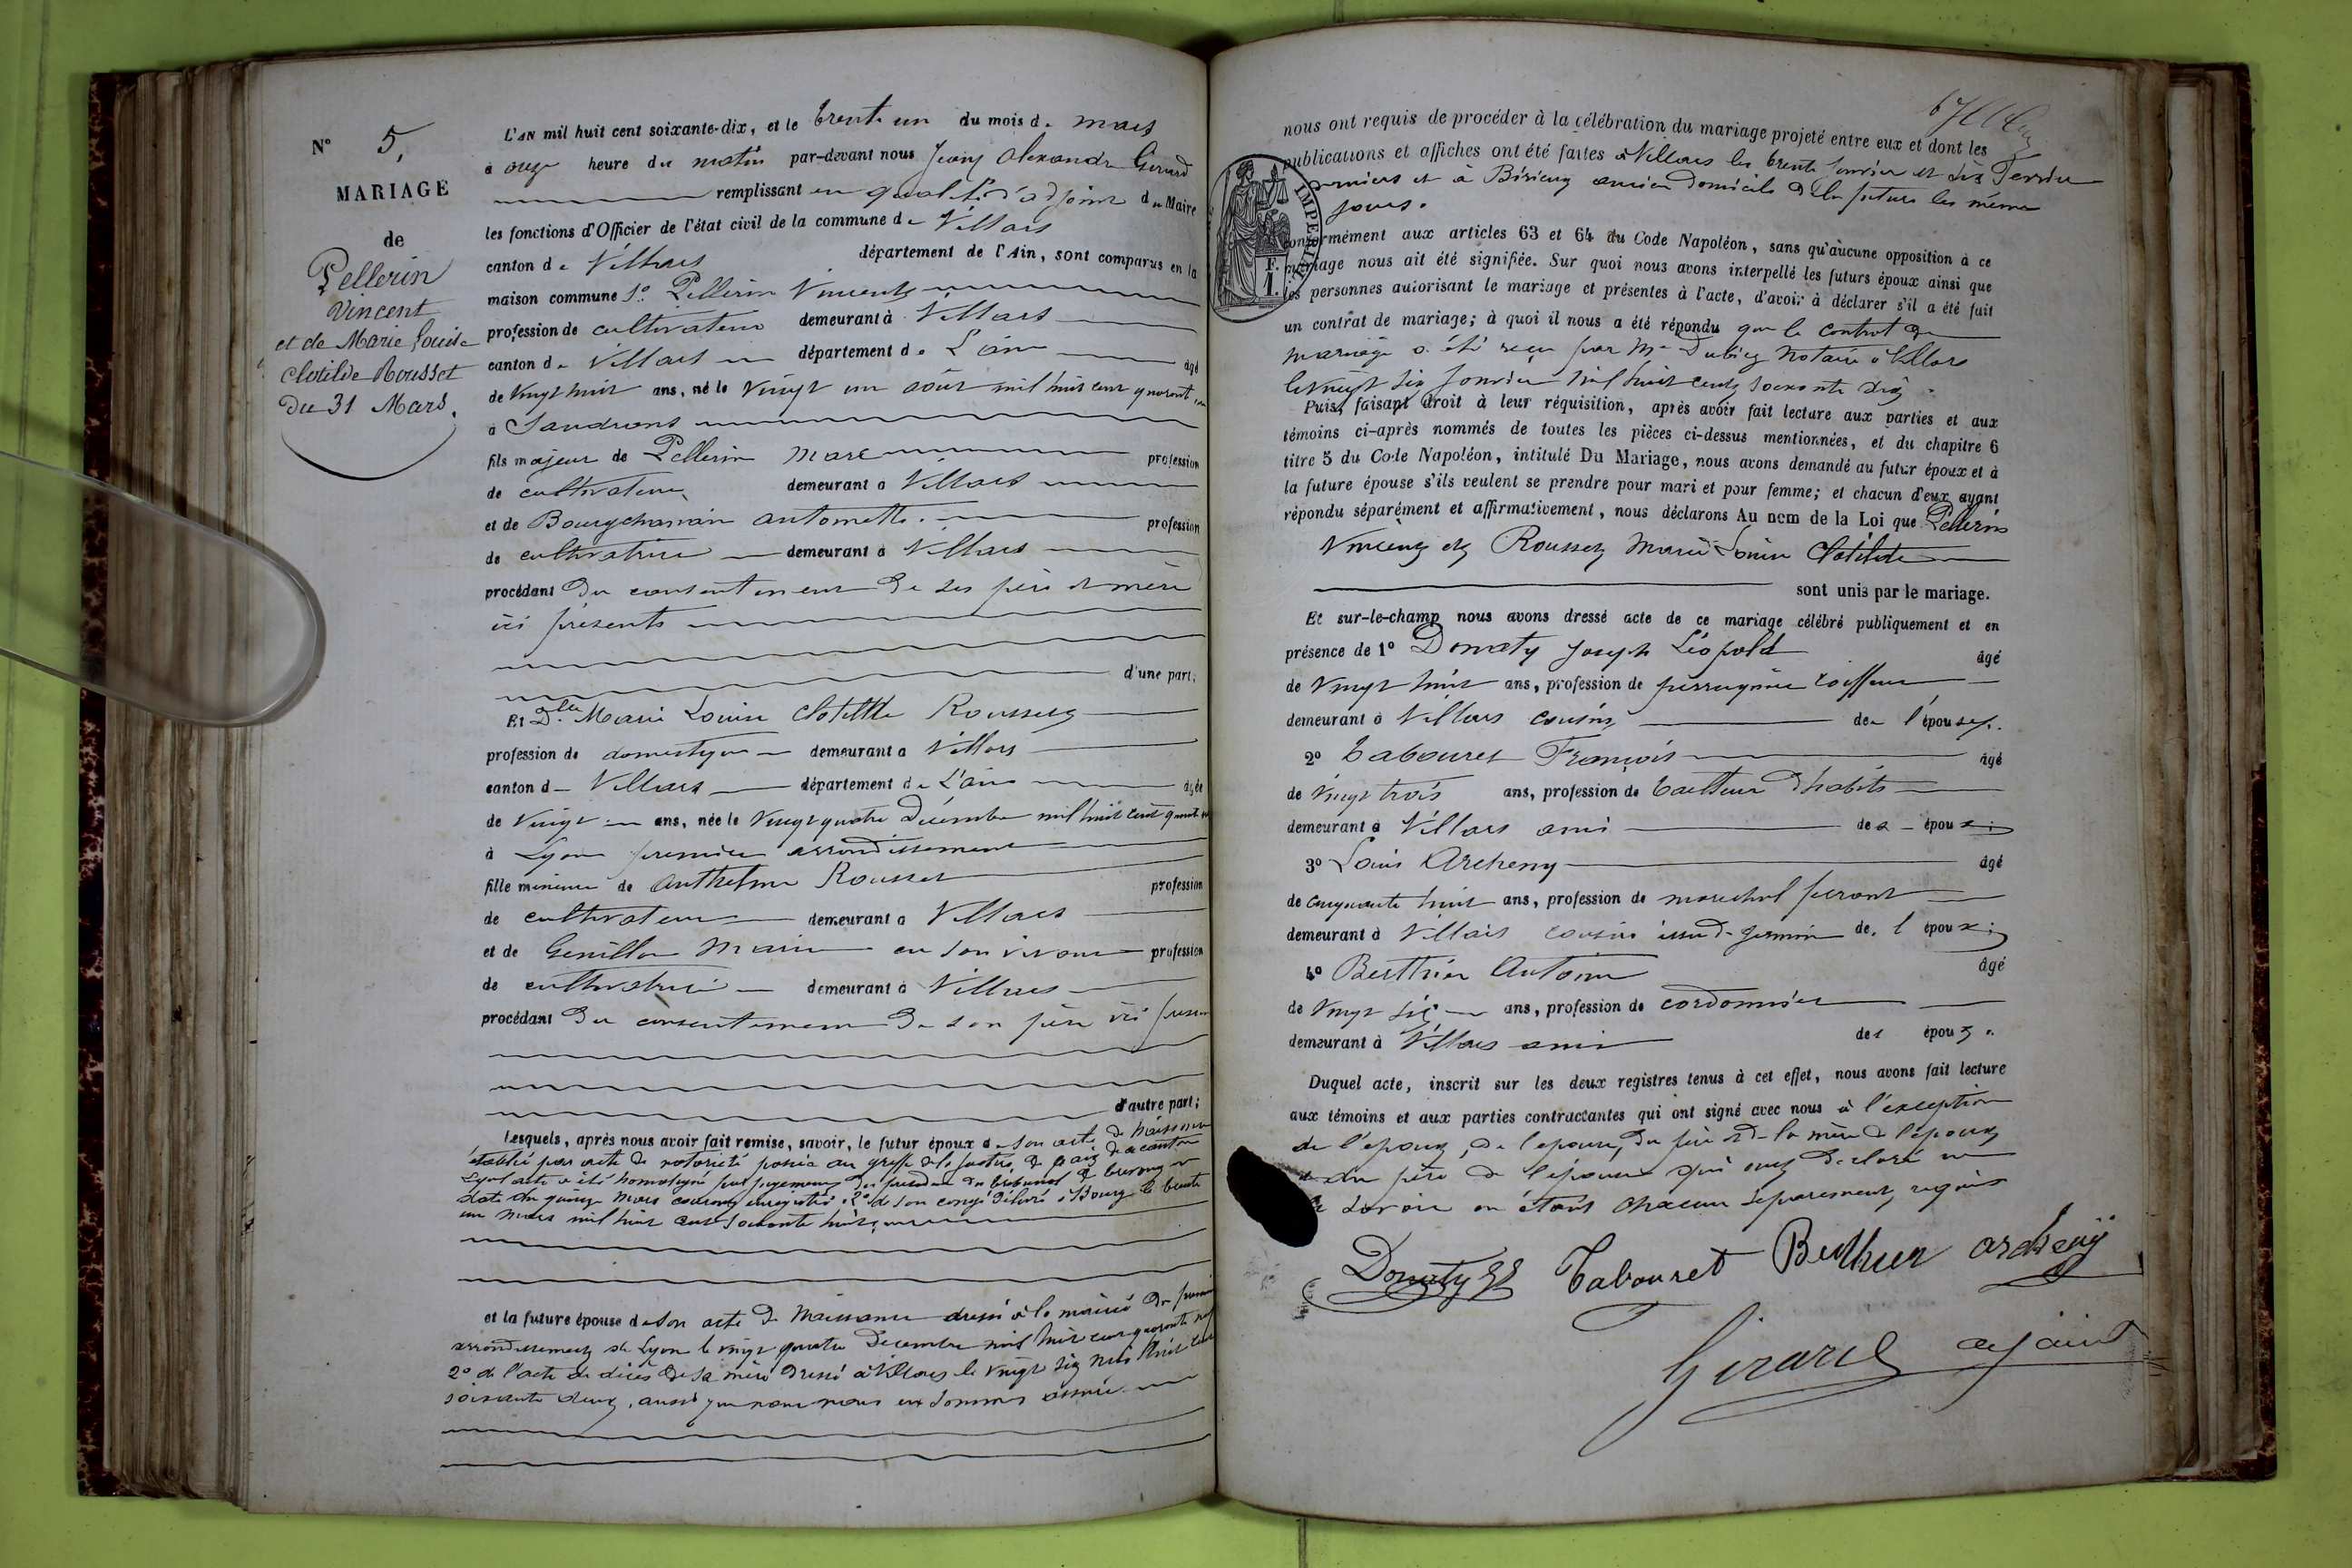 N° 5,
MARIAGE
de
Pellerin
Vincent
et de Marie Louise
Clotilde Rousset
Du 31 Mars.
L'AN mil huit cent soixante-dix, et le trente un du mois de mars
à onze heure du matin par-devant nous Jean Alexandre Girard
remplissant en qualité d'adjoint du Maire
les fonctions d'Officier de l'état civil de la commune de Villars
canton de Villars département de l'Ain, sont comparus en la
maison commune 1° Pellerin Vincent
profession de cultivateur demeurant à Villars
canton de Villars département de L'ain âgé
de vingt huit ans, né le vingt un août mil huit cent quarante un
à Sandrans
fils majeur de Pellerin Marc profession
de cultivateur demeurant à Villars
et de Bourgchanin antoinette profession
de cultivatrice demeurant à Villars
procédant du consentement de ses père et mère
ici présents
d'une part;
Et Dlle Marie Louise Clotilde Rousset
profession de domestique demeurant à Villars
canton de Villars département de L'ain âgée
de vingt ans, née le vingt quatre Décembre mil huit cent quarante neuf
à Lyon premier arrondissement
fille mineure de Anthelme Rousset profession
de cultivateur demeurant à Villars
et de Genillon Marie en son vivant profession
de cultivatrice demeurant à Villars
procédant du consentement de son père ici présent
d'autre part;
Lesquels, après nous avoir fait remise, savoir, le futur époux de son acte de Naissance
établi par acte de notoriété passé au greffe de la justice de paix de ce canton
Lequel acte a été homologué par jugement du tribunal de trevoux en
date du quinze mars courant enregistré 2° de son congé délivré à Bourg le trente
un mars mil huit cent soixante huit,
et la future épouse de son acte de Naissance dressé à la mairie du premier
arrondissement de Lyon le vingt quatre Décembre mil huit cent quarante neuf
2° de l'acte de décès de sa mère dressé à Villars le vingt six mil huit cent
soixante deux, aussi que nous nous en sommes assuré
nous ont requis de procéder à la célébration du mariage projeté entre eux et dont les
publications et affiches ont été faites à Villars les trente Janvier et six Fevrier
derniers et a Birieux ancien domicile de la future les même
jours.
conformément aux articles 63 et 64 du Code Napoléon, sans qu'aucune opposition à ce
mariage nous ait été signifiée. Sur quoi nous avons interpellé les futurs époux ainsi que
les personnes autorisant le mariage et présentes à l'acte, d'avoir à déclarer s'il a été fait
un contrat de mariage; à quoi il nous a été répondu que le contrat de
mariage a été reçu par Me Notaire à Villars
le vingt six Janvier mil huit cent soixante dix.
Puis, faisant droit à leur réquisition, après avoir fait lecture aux parties et aux
témoins ci-après nommés de toutes les pièces ci-dessus mentionnées, et du chapitre 6
titre 5 du Code Napoléon, intitulé Du Mariage, nous avons demandé au futur époux et à
la future épouse s'ils veulent se prendre pour mari et pour femme; et chacun d'eux ayant
répondu séparément et affirmativement, nous déclarons Au nom de la Loi que Pellerin
Vincent et Rousset Marie Louise Clotilde
sont unis par le mariage.
Et sur-le-champ nous avons dressé acte de ce mariage célébré publiquement et en
présence de 1° Donaty Joseph Léopold âgé
de vingt huit ans, profession de perruquier coiffeur
demeurant à Villars cousin de l'épouse.
2° Tabouret François âgé
de vingt trois ans, profession de tailleur d'habits
demeurant à Villars ami des époux;
3° Louis Archeny âgé
de cinquante huit ans, profession de marechal ferrant
demeurant à Villars cousin issu de germain de l'époux;
4° Berthier Antoine âgé
de vingt six ans, profession de cordonnier
demeurant à Villars ami des époux.
Duquel acte, inscrit sur les deux registres tenus à cet effet, nous avons fait lecture
aux témoins et aux parties contractantes qui ont signé avec nous à l'exception
de l'époux, de l'épouse, du père et de la mère de l'époux
et du père de l'épouse qui ont déclaré ne
le savoir en étant chacun séparement requis
Donaty Tabouret Berthier archeny
Girard adjoint
IMPERIAL
1 F.